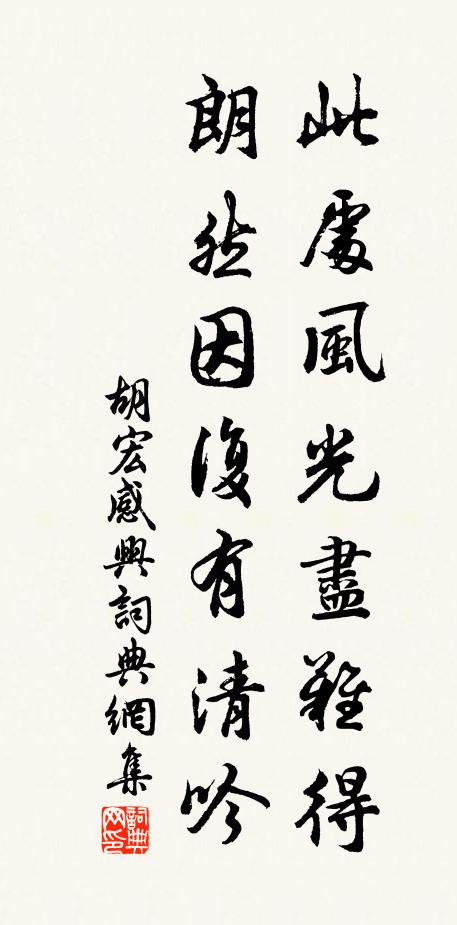 此處風光盡難得
朗然因復有清吟
胡宏感興詞典網集
詞典网印